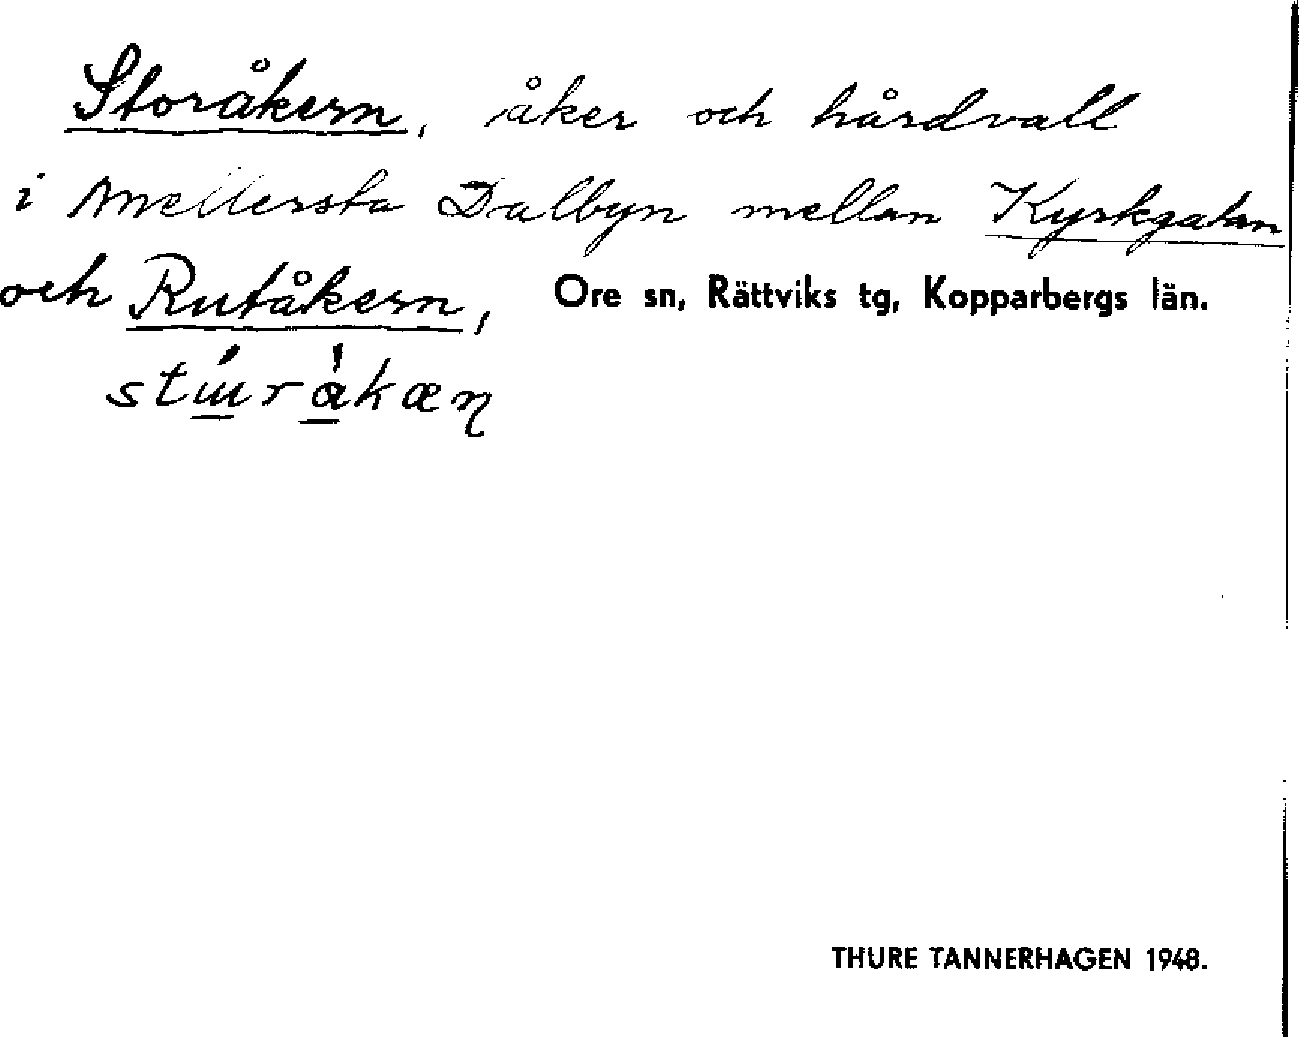 Storåkern, åker och hårdvall
i mellersta Dalbyn mellan Kyrkgatan
och Rutåkern, Ore sn, Rättviks tg, Kopparbergs län.
THURE TANNERHAGEN 1948.